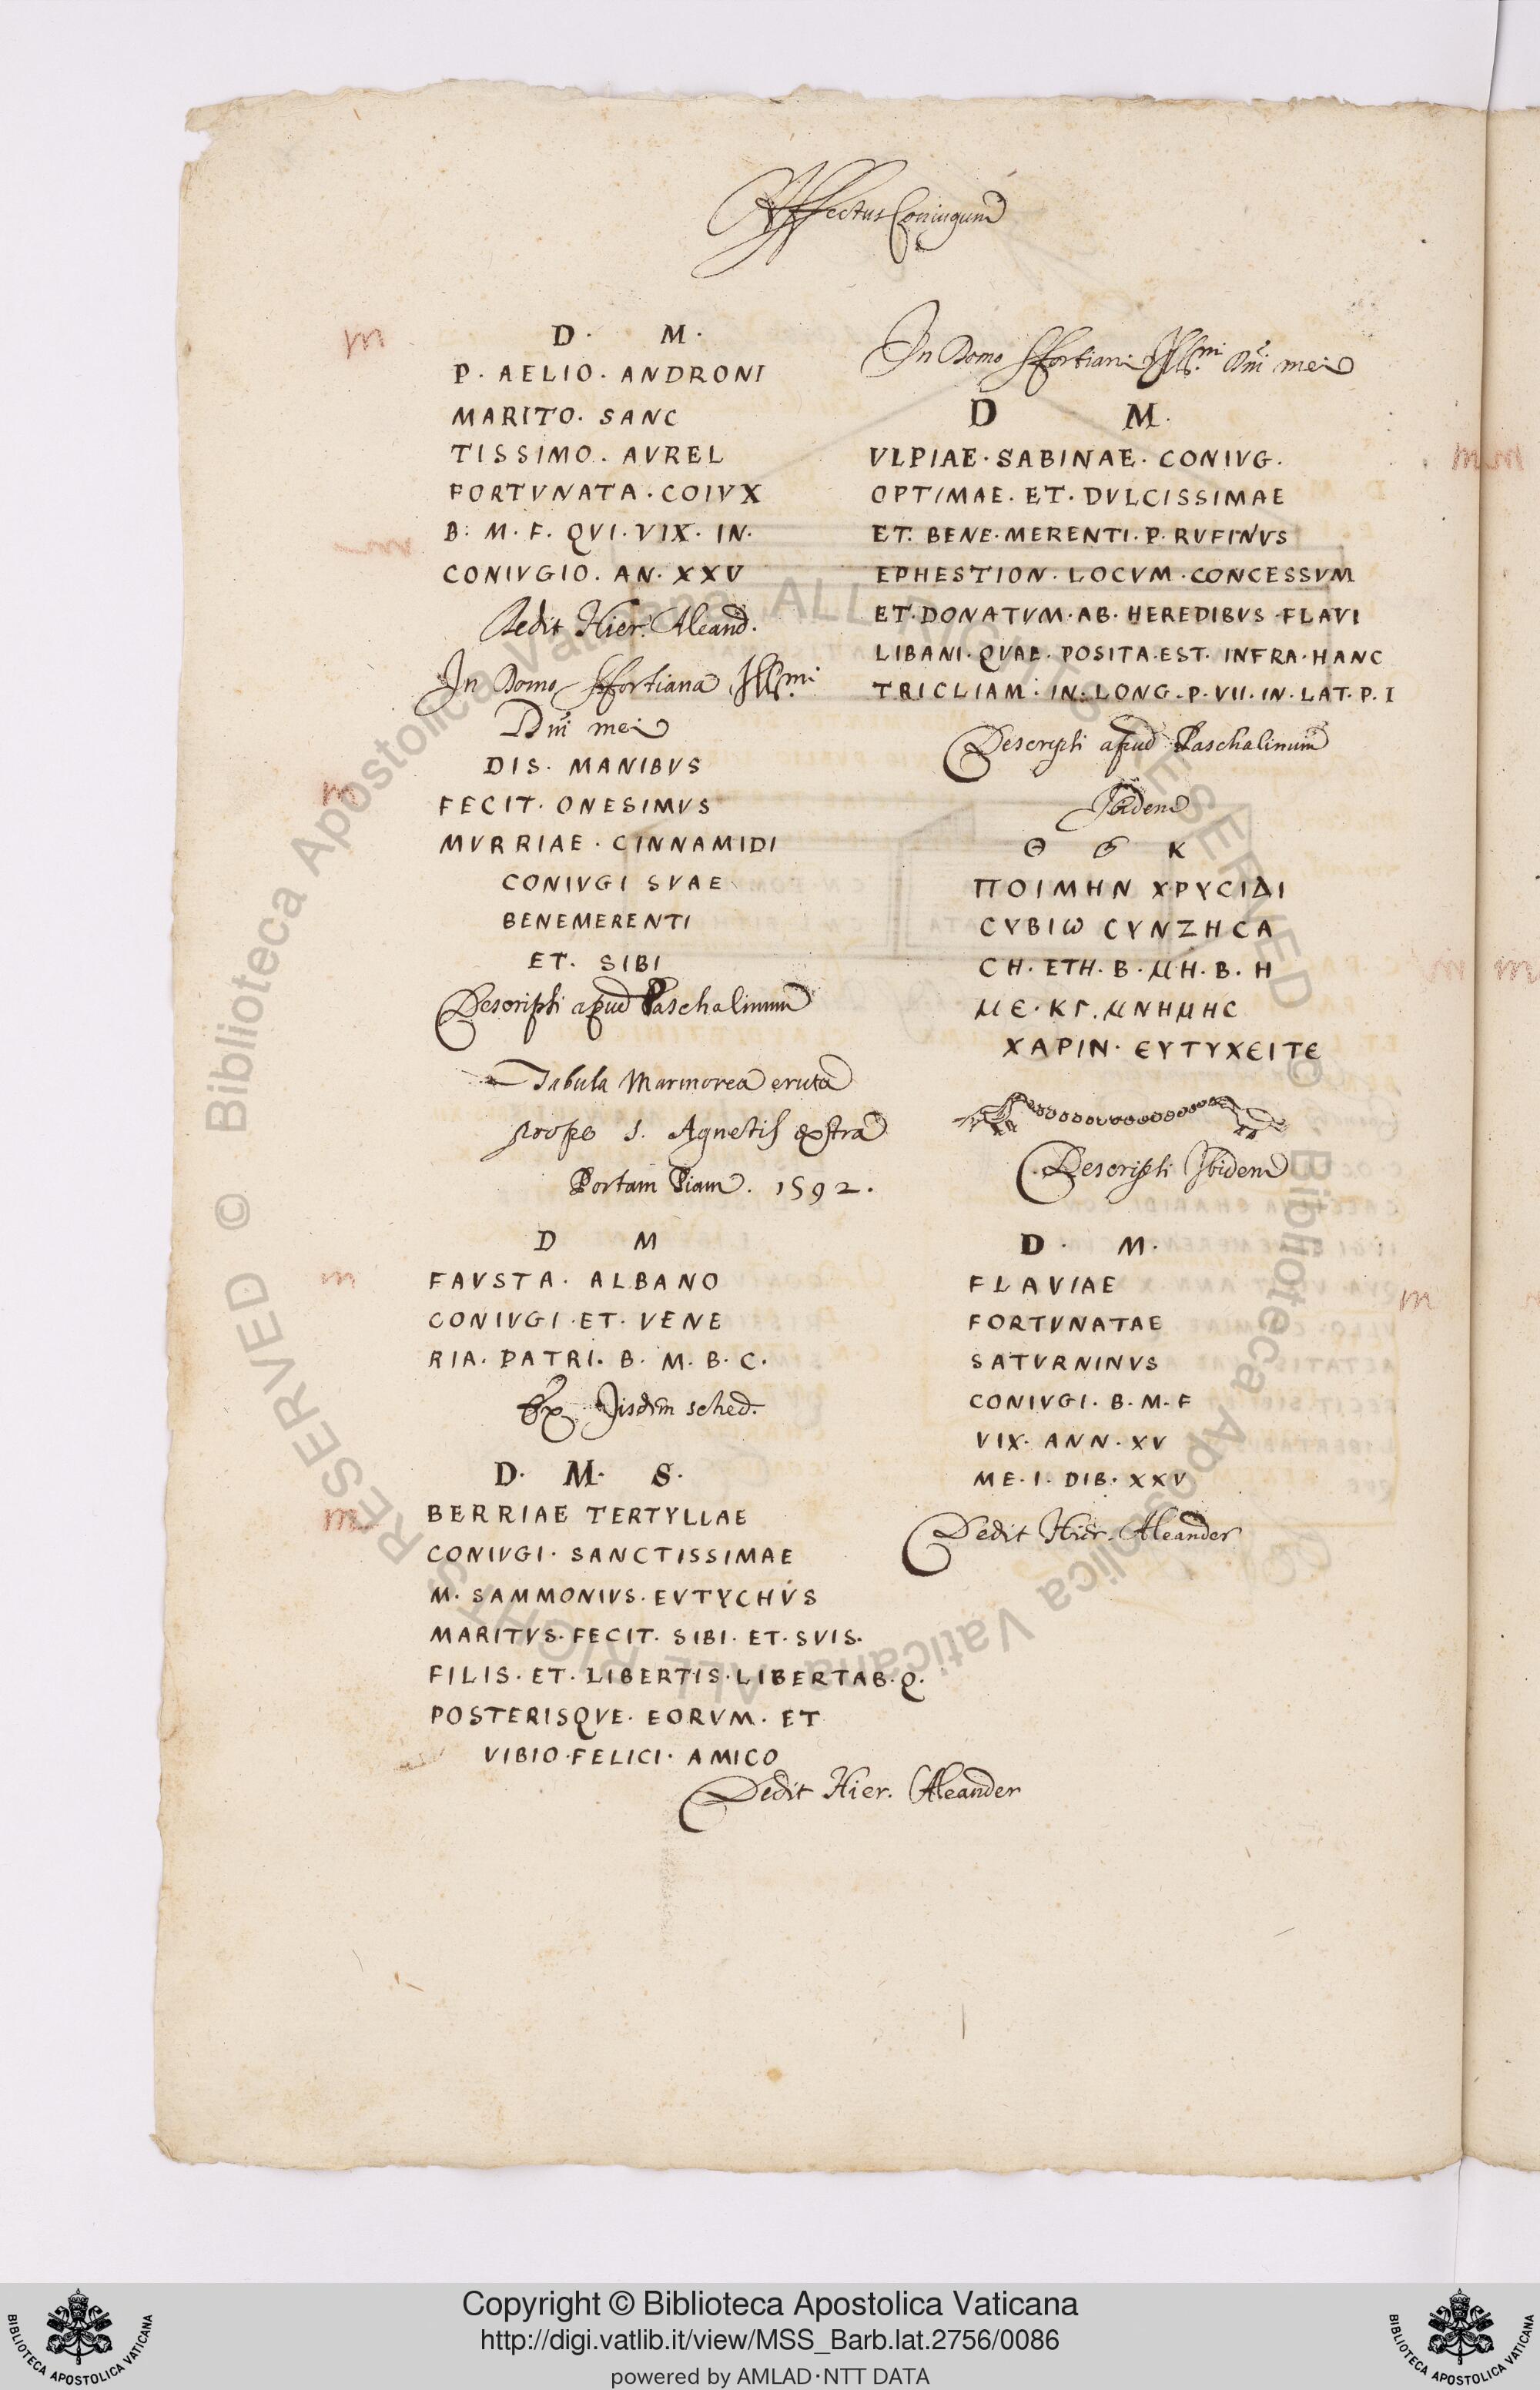 Affectus Coniugum
m
D · M ·
P · AELIO · ANDRONI
MARITO · SANC
TISSIMO · AVREL
FORTVNATA · COIVX
B : M · F · QVI · VIX · IN ·
CONIVGIO · AN · XXV
Dedit Hier. Aleand.
In Domo Sfortiana Ill.mi
Dni mei
DIS · MANIBVS
m
FECIT · ONESIMVS
MVRRIAE · CINNAMIDI
CONIVGI SVAE
BENEMERENTI
ET · SIBI
Descripti apud Paschalinum
Tabula Marmorea eruta
prope S. Agnetis extra
Portam Piam. 1592.
D M
m
FAVSTA · ALBANO
CONIVGI · ET · VENE
RIA · PATRI · B · M · B · C ·
Ex Iisdem sched.
D · M · S ·
m
BERRIAE TERTYLLAE
CONIVGI · SANCTISSIMAE
M · SAMMONIVS · EVTYCHVS
MARITVS · FECIT · SIBI · ET · SVIS ·
FILIS · ET · LIBERTIS · LIBERTAB · Q ·
POSTERISQVE · EORVM · ET
VIBIO · FELICI · AMICO
Dedit Hier. Aleander
In Domo Sfortiana Ill.mi Dni mei
D M ·
VLPIAE · SABINAE · CONIVG ·
OPTIMAE · ET · DVLCISSIMAE
ET · BENE · MERENTI · P · RVFINVS
EPHESTION · LOCVM · CONCESSVM
ET · DONATVM · AB · HEREDIBVS · FLAVI
LIBANI · QVAE · POSITA · EST · INFRA · HANC
TRICLIAM · IN · LONG · P · VII · IN · LAT · P · I
Descripti apud Paschalinum
Ibidem
Θ Κ
ΠΟΙΜΗΝ ΧΡΥCΙΔΙ
CΥΒΙω CΥΝΖΗCΑ
CΗ · ΕΤΗ · Β · ΜΗ · Β · Η
ΜΕ · ΚΓ · ΜΝΗΜΗC
ΧΑΡΙΝ · ΕΥΤΥΧΕΙΤΕ
Descripti Ibidem
D · M ·
FLAVIAE
m
FORTVNATAE
SATVRNINVS
CONIVGI · B · M · F
VIX · ANN · XV
ME · I · DIB · XXV
Dedit Hier. Aleander
© Biblioteca Apostolica Vaticana ALL RIGHTS RESERVED © Biblioteca Apostolica Vaticana ALL RIGHTS RESERVED
Copyright © Biblioteca Apostolica Vaticana
http://digi.vatlib.it/view/MSS_Barb.lat.2756/0086
powered by AMLAD·NTT DATA
BIBLIOTECA APOSTOLICA VATICANA
BIBLIOTECA APOSTOLICA VATICANA